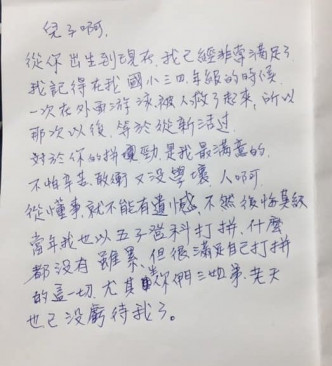 兒子啊,
從你出生到現在,我已經非常滿足了
我記得在我國小三四年級的時候
一次在外面游泳,被人救了起來,所以
那次以後,等於從新活过
對於你的拼勁是我最滿意的,
不怕辛苦,敢衝又没學壞,人啊,
從懂事,就不能有遺憾,不然後悔莫及
當年我也以五子登科打拼,什麼
都没有雖累,但很滿足自己打拼
的這一切,尤其生你們三姐弟,老天
也已没虧待我了。